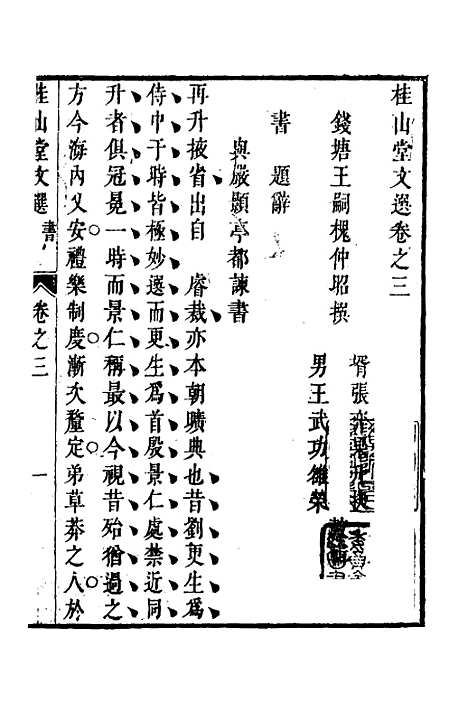 桂山堂文選卷之三
錢塘王嗣槐仲昭撰
壻張
男王武功維榮
書 題辭
與嚴顥亭都諫書
再升掖省出自 睿裁亦本朝曠典也昔劉更生爲
侍中于時皆極妙選而更生爲首殷景仁處禁近同
升者俱冠冕一時而景仁稱最以今視昔殆猶過之
方今海內乂安禮樂制慶漸次釐定弟草莽之人於
桂山堂文選 書 卷之三 一